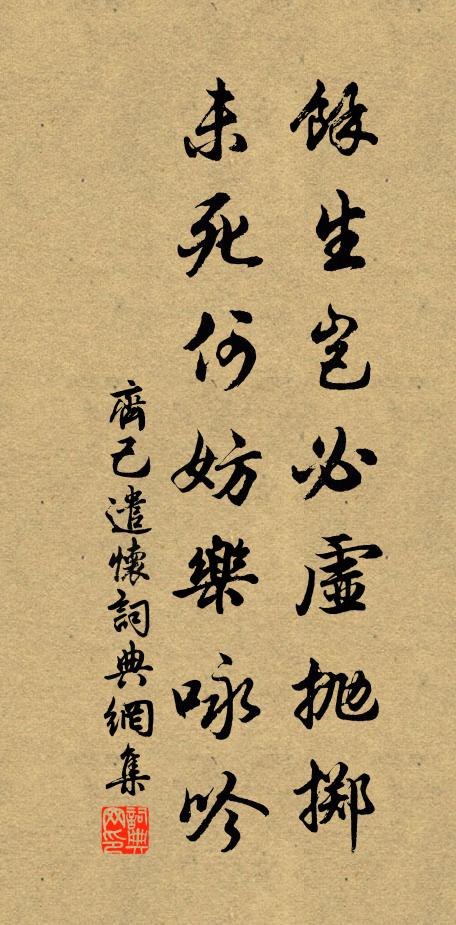 餘生豈必虛拋擲
未死何妨樂咏吟
齊己遣懷詞典網集
詞典網印